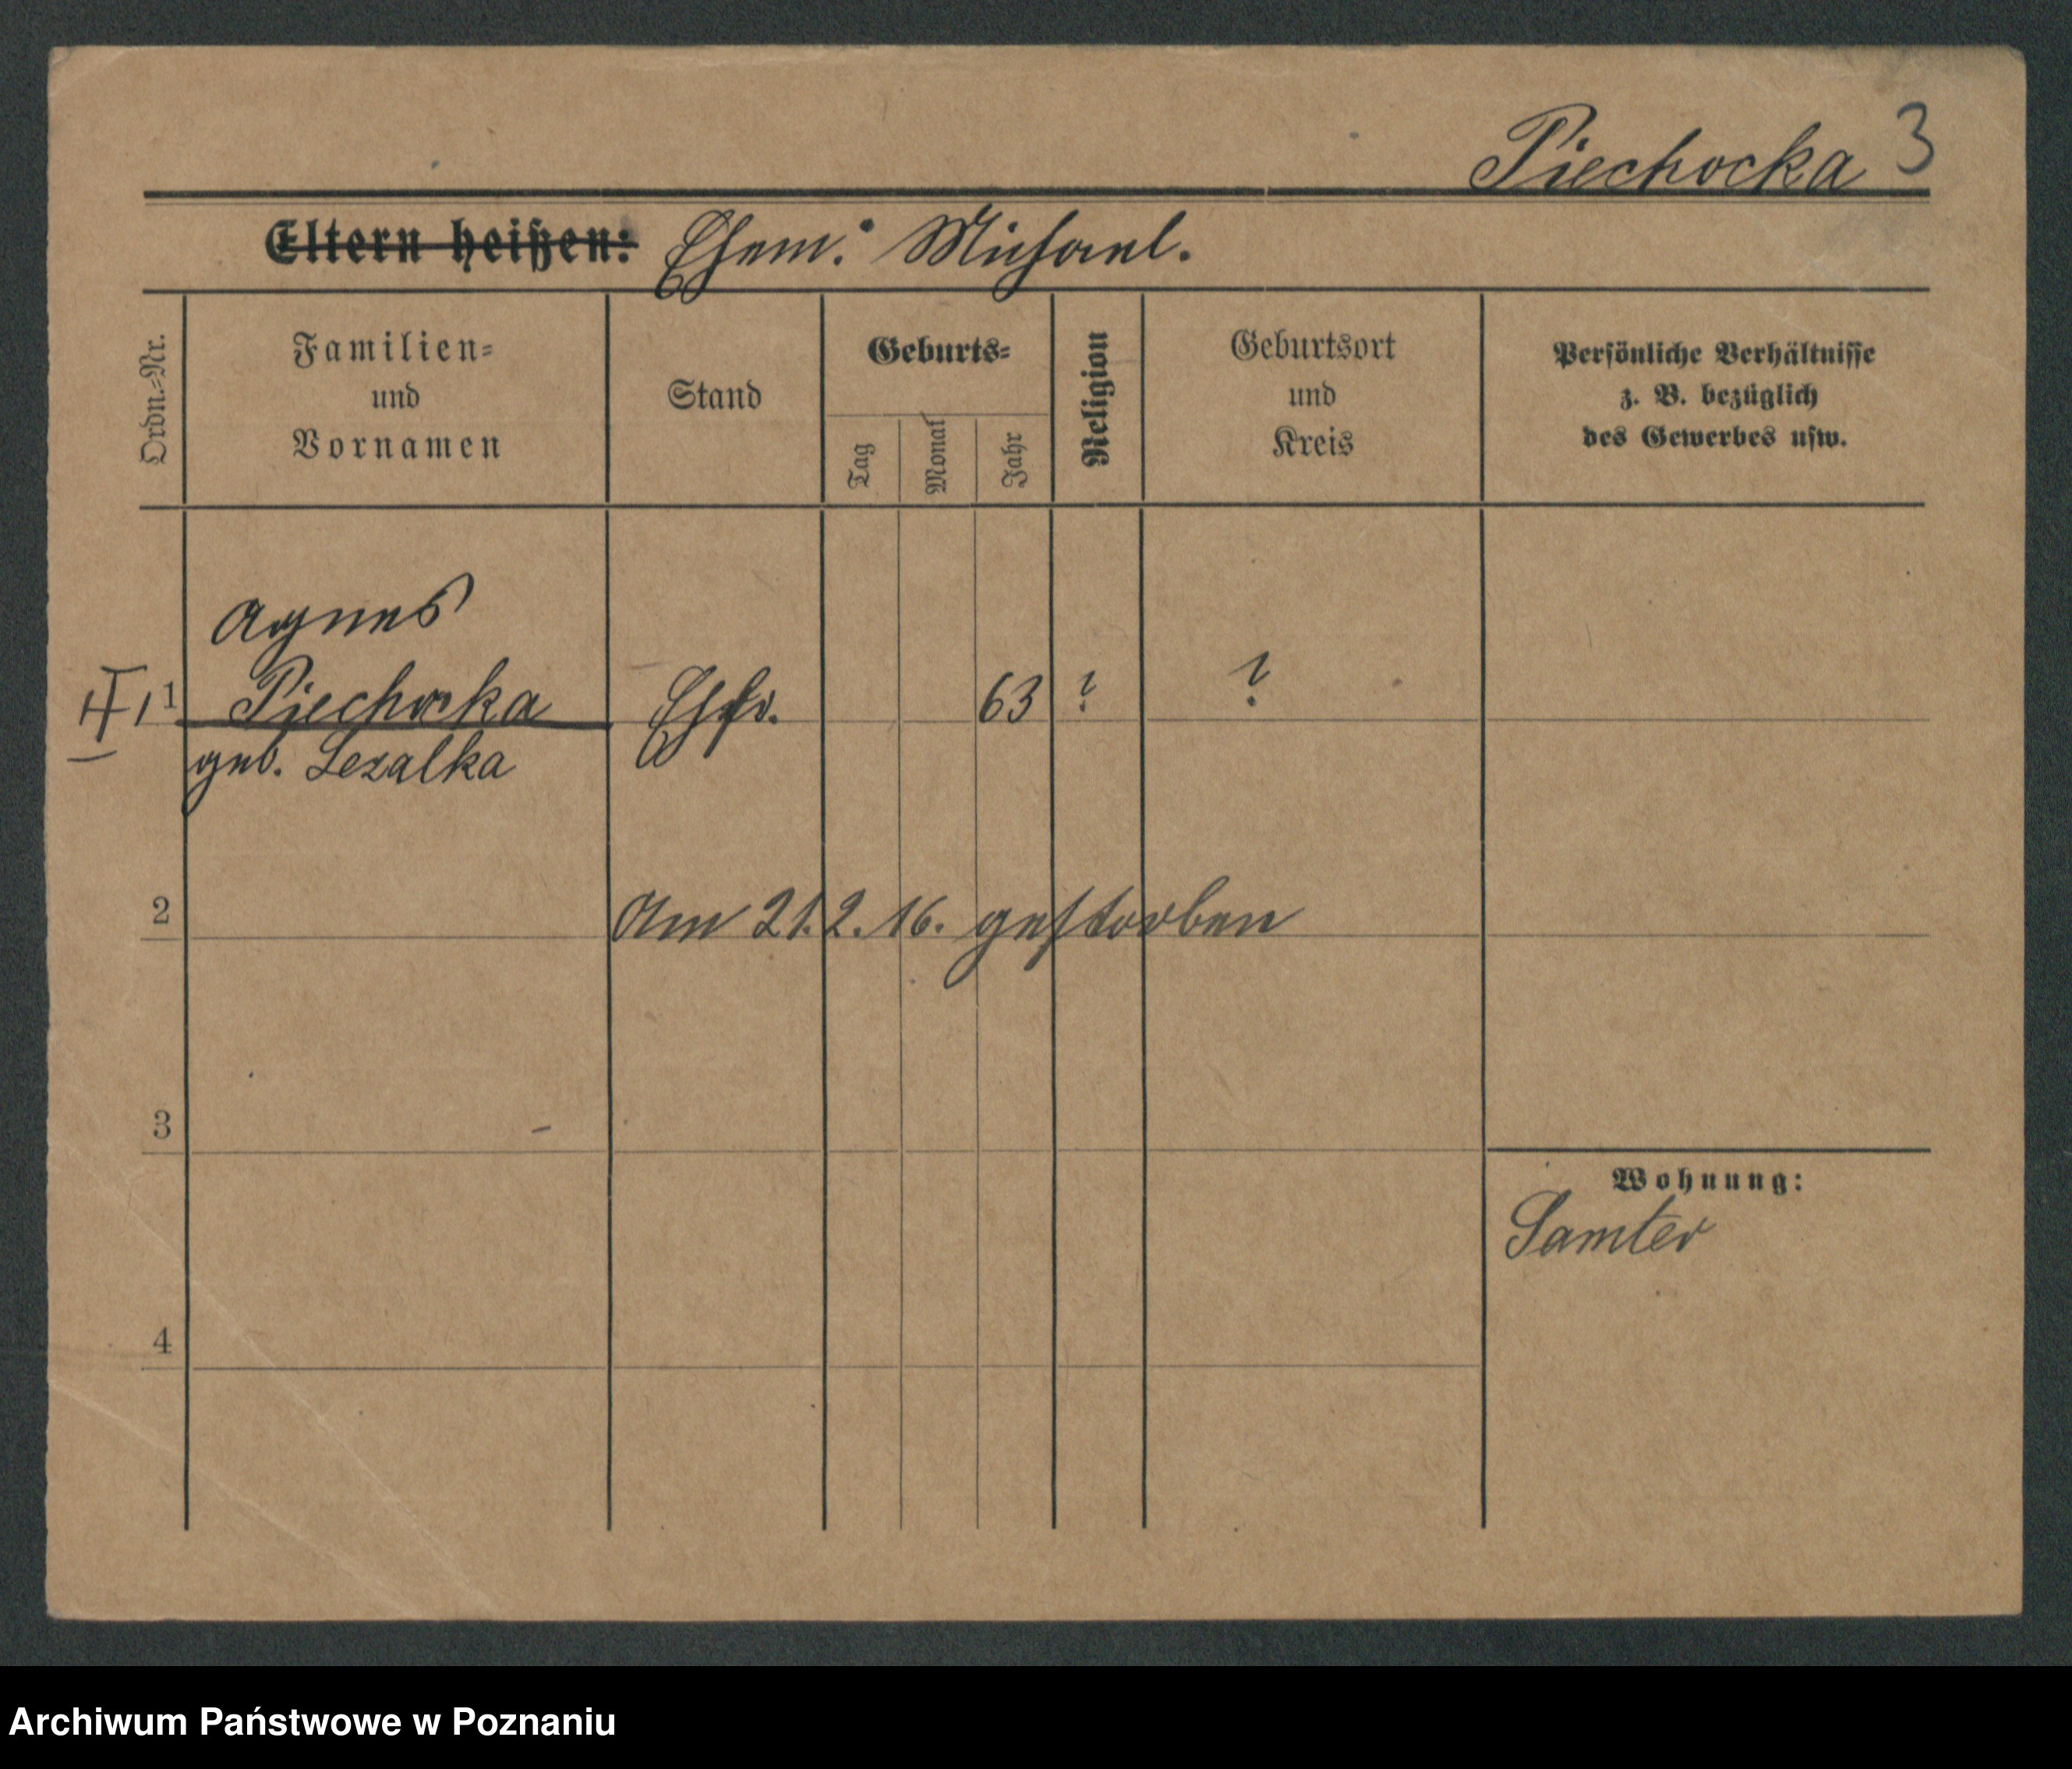 Piechocka 3
Eltern heißen: Ehem: Michael.
Ordn.-Nr.
Familien-
und
Vornamen
Stand
Geburts-
Tag
Monat
Jahr
Religion
Geburtsort
und
Kreis
Persönliche Verhältnisse
z. B. bezüglich
des Gewerbes usw.
Agnes
1 Piechocka Ehfr. 63 ? ?
geb. Lezalka
2 Am 21.2.16. gestorben
3
Wohnung:
Samter
4
Archiwum Państwowe w Poznaniu